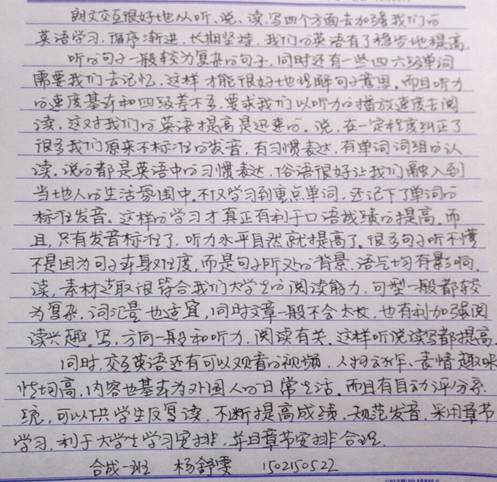 朗文交互很好地从听、说、读、写四个方面去加强我们的
英语学习，循序渐进，长期坚持，我们的英语有了稳步地提高。
听的句子一般较为复杂的句子，同时还有一些四六级单词
需要我们去记忆，这样才能很好地理解句子意思。而且听力
的速度基本和四级差不多，要求我们以听力的播放速度去阅
读，这对我们的英语提高是迅速的。说，在一定程度纠正了
很多我们原来不标准的发音，有习惯表达，有单词词组的认
读。说的都是英语中的习惯表达，俗语很好让我们融入到
当地人的生活氛围中，不仅学习到重点单词，还记下了单词的
标准发音。这样的学习才真正有利于口语成绩的提高。而
且，只有发音标准了，听力水平自然就提高了。很多句子听不懂
不是因为句子本身难度，而是句子所处的背景，语气均有影响。
读，素材选取很符合我们大学生的阅读能力，句型一般都较
为复杂，词汇量也适宜，同时文章一般不会太长，也有利加强阅
读兴趣。写，方向一般和听力，阅读有关。这样听说读写都提高。
同时，交互英语还有可以观看的视频，人物水平、表情趣味
性均高，内容也基本为外国人的日常生活。而且有自动评分系
统，可以供学生反复读，不断提高成绩，规范发音。采用章节
学习，利于大学生学习安排，并且章节安排合理。
合成一班 杨舒雯 1502150522